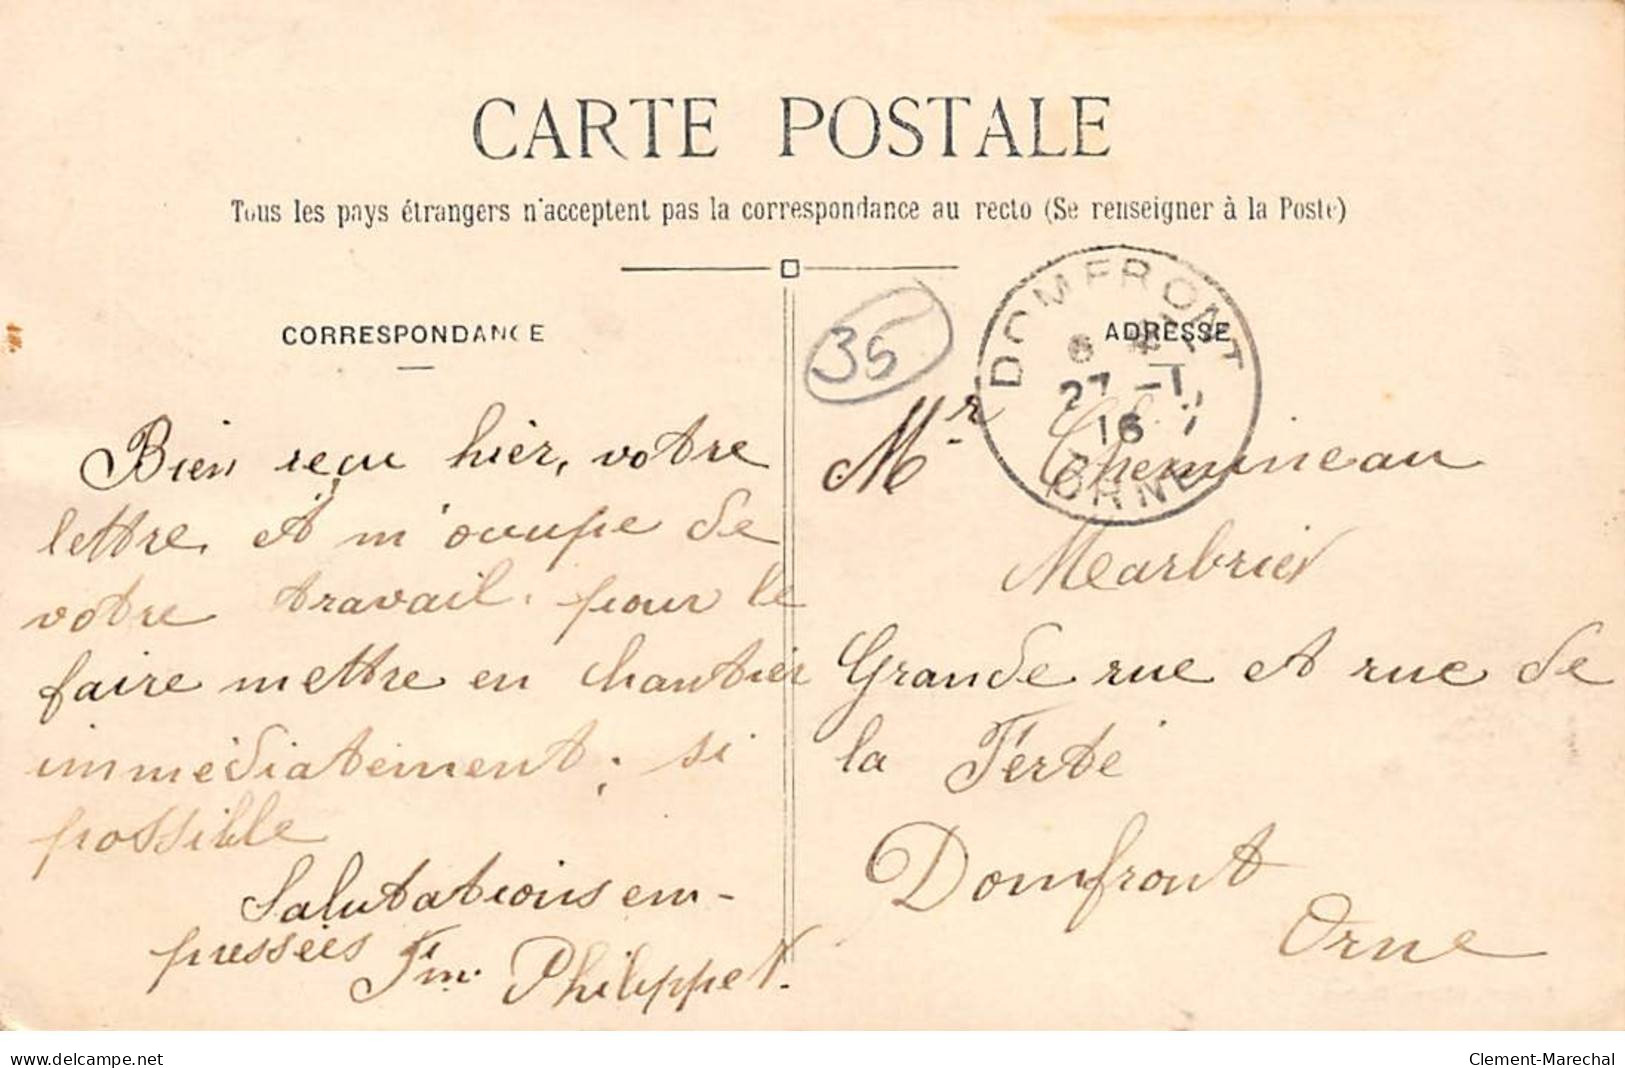 CARTE POSTALE
Tous les pays étrangers n'acceptent pas la correspondance au recto (Se renseigner à la Poste)
CORRESPONDANCE
Bien reçu hier, votre
lettre, et m'occupe de
votre travail, pour le
faire mettre en chantier
immédiatement, si
possible
Salutations em-
pressées
Fm Philippet.
35
ADRESSE
DOMFRONT
27 -1
16
ORNE
Mr Chemineau
Marbrier
Grande rue et rue de
la Ferté
Domfront
Orne
www.delcampe.net
Clement-Marechal